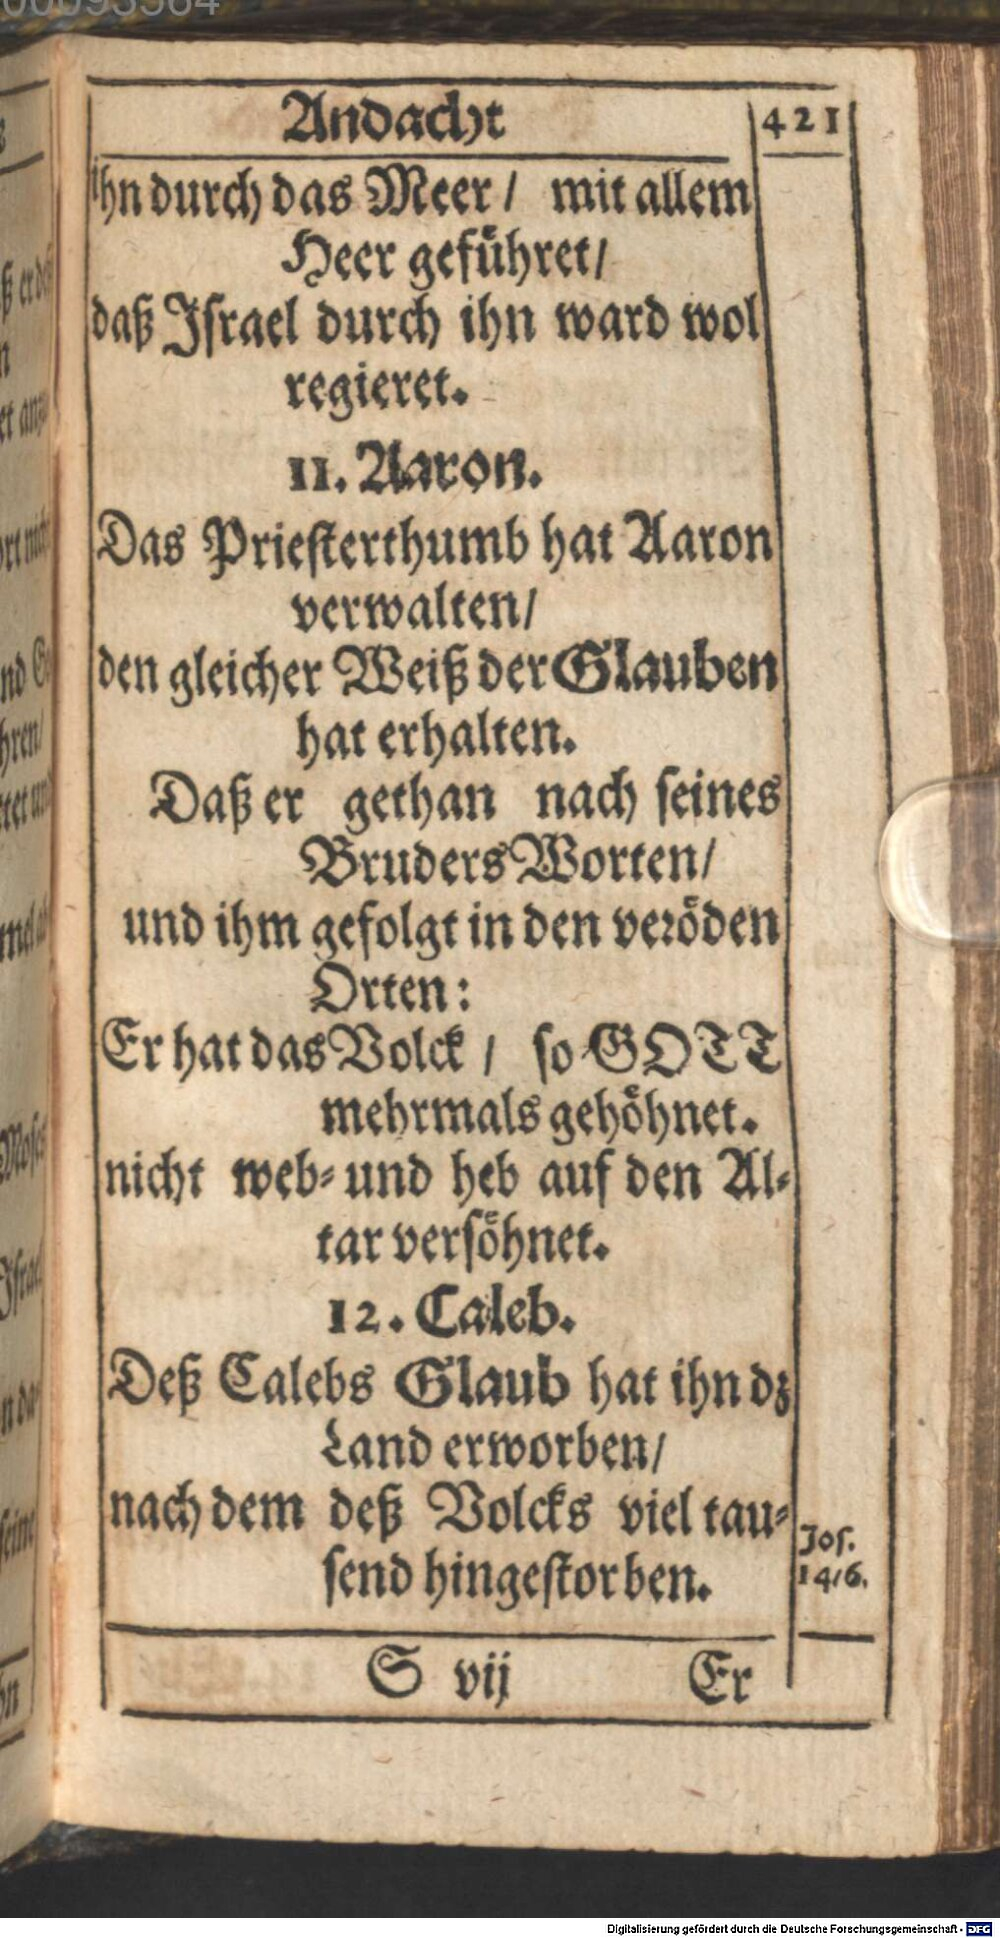 Andacht 421
ihn durch das Meer / mit allem
Heer geführet /
daß Iſrael durch ihn ward wol
regieret.
11. Aaron.
Das Prieſterthumb hat Aaron
verwalten /
den gleicher Weiß der Glauben
hat erhalten.
Daß er gethan nach ſeines
Bruders Worten /
und ihm gefolgt in den veröden
Orten:
Er hat das Volck / ſo GOTT
mehrmals gehöhnet.
nicht web- und heb auf den Al-
tar verſöhnet.
12. Caleb.
Deß Calebs Glaub hat ihn dz
Land erworben /
nach dem deß Volcks viel tau-
ſend hingeſtorben.
Joſ.
14/6.
S vij Er
Digitalisierung gefördert durch die Deutsche Forschungsgemeinschaft - DFG